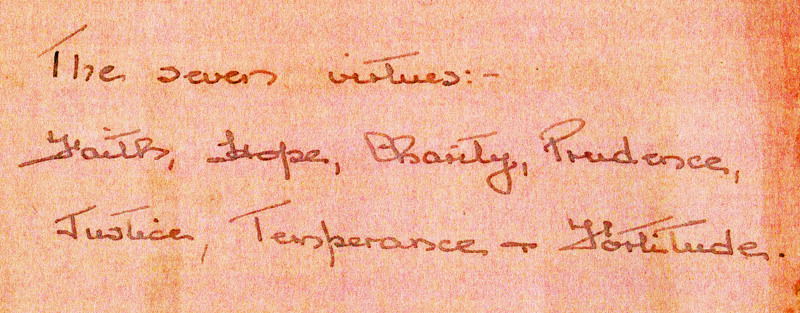 The seven virtues:-
Faith, Hope, Charity, Prudence,
Justice, Temperance + Fortitude.